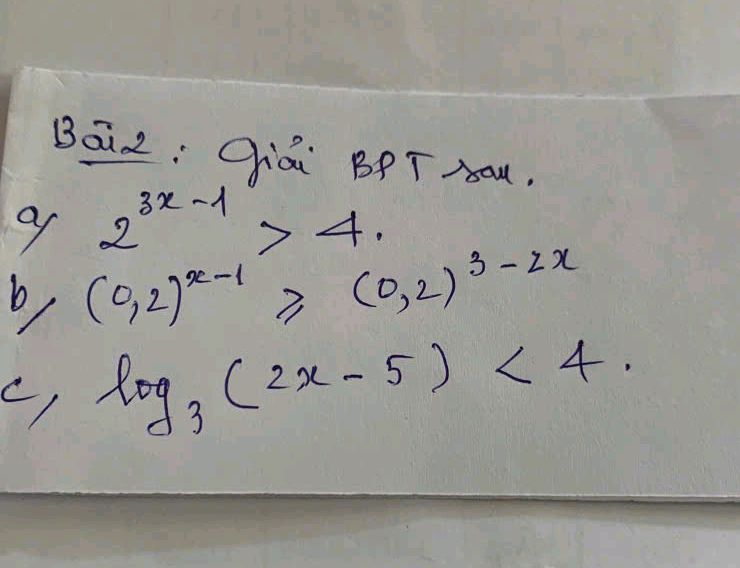 Bài 2: Giải BPT sau.
a, 2^{3x-1} > 4.
b, (0,2)^{x-1} ⩾ (0,2)^{3-2x}
c, log_3 (2x - 5) < 4.